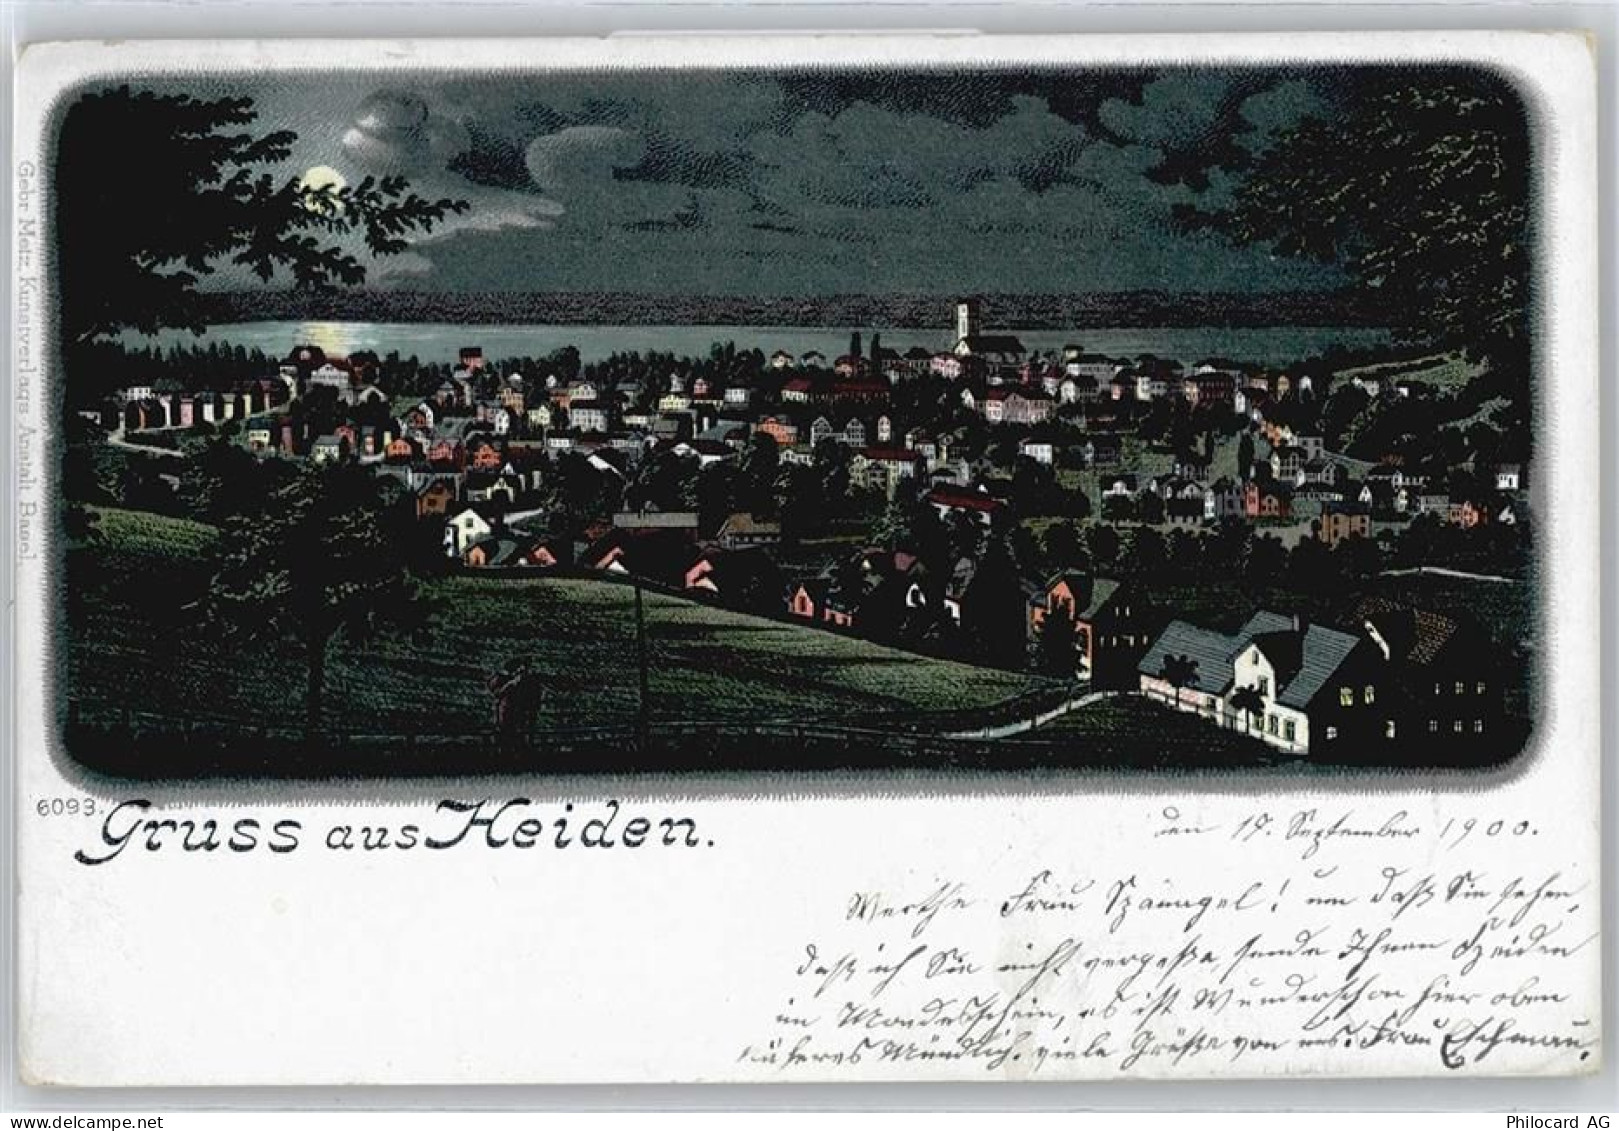 Gebr. Metz, Kunstverlags-Anstalt Basel.
6093.
Gruss aus Heiden.
den 19. September 1900.
Werthe Frau Spänngel! um daß Sie sehen,
daß ich Sie nicht vergeße, sende Ihnen Heiden
im Mondesschein, es ist Wunderschön hier oben
näheres Mündlich. viele Grüße von uns. Frau Eschmann.
Philocard AG